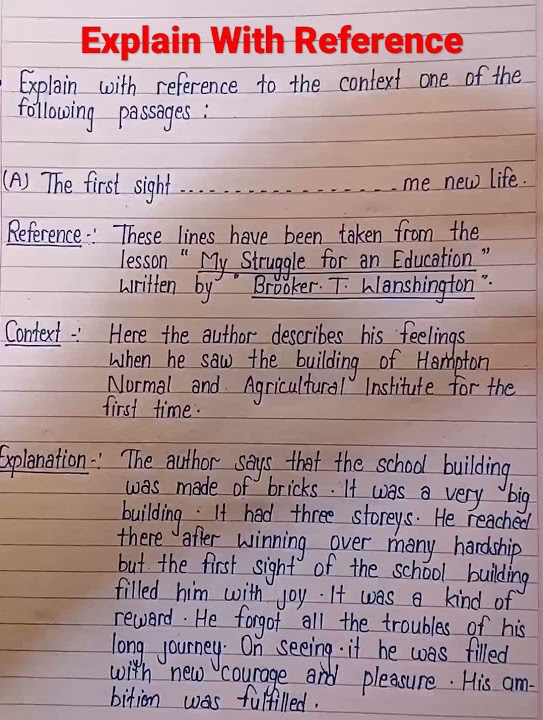 Explain With Reference
Explain with reference to the context one of the
following passages :
(A) The first sight ..................... me new life.
Reference :- These lines have been taken from the
lesson " My Struggle for an Education "
written by " Brooker. T. Wanshington ".
Context :- Here the author describes his feelings
when he saw the building of Hampton
Normal and Agricultural Institute for the
first time.
Explanation :- The author says that the school building
was made of bricks. It was a very big
building. It had three storeys. He reached
there after winning over many hardship
but the first sight of the school building
filled him with joy. It was a kind of
reward. He forgot all the troubles of his
long journey. On seeing it he was filled
with new courage and pleasure. His am-
bition was fulfilled.